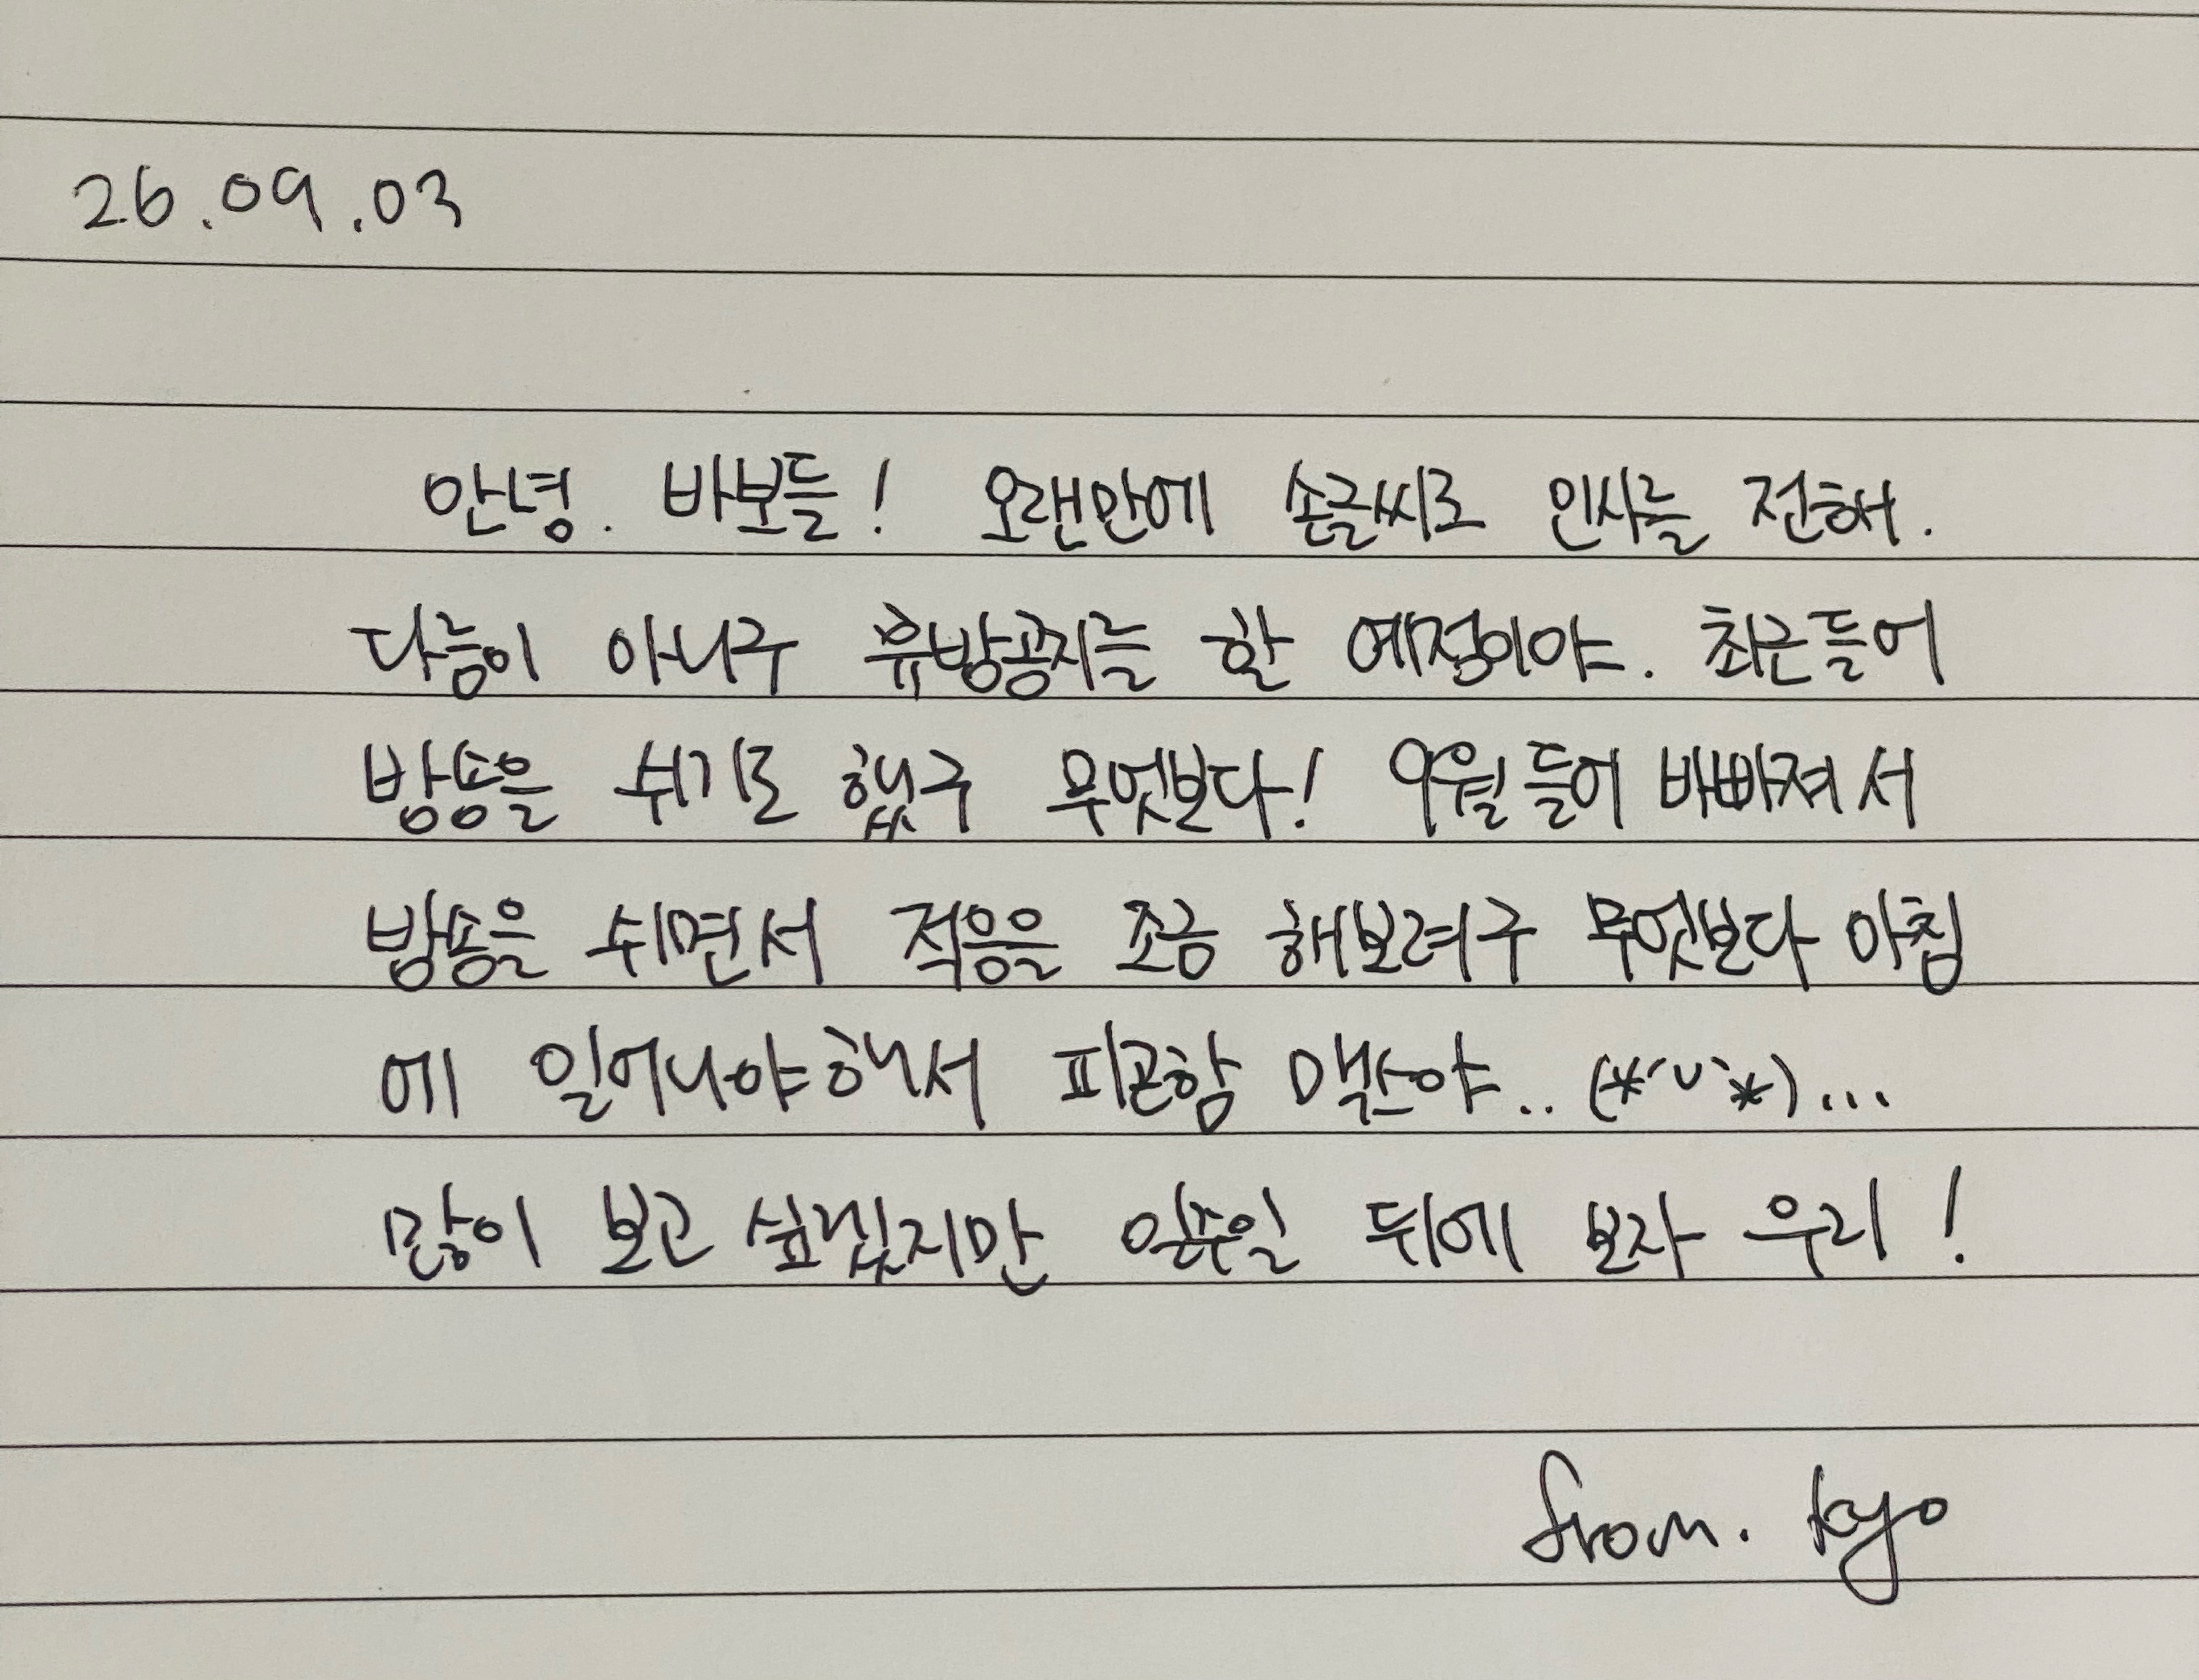 26.09.03
안녕. 바보들! 오랜만에 손글씨로 인사를 전해.
다름이 아니구 휴방공지를 할 예정이야. 최근들어
방송을 쉬기로 했구 무엇보다! 9월 들어 바빠져서
방송을 쉬면서 적응을 조금 해보려구 무엇보다 아침
에 일어나야해서 피곤함 맥스야.. (*´ᵕ`*)...
많이 보고 싶겠지만 일주일 뒤에 보자 우리!
from. kyo